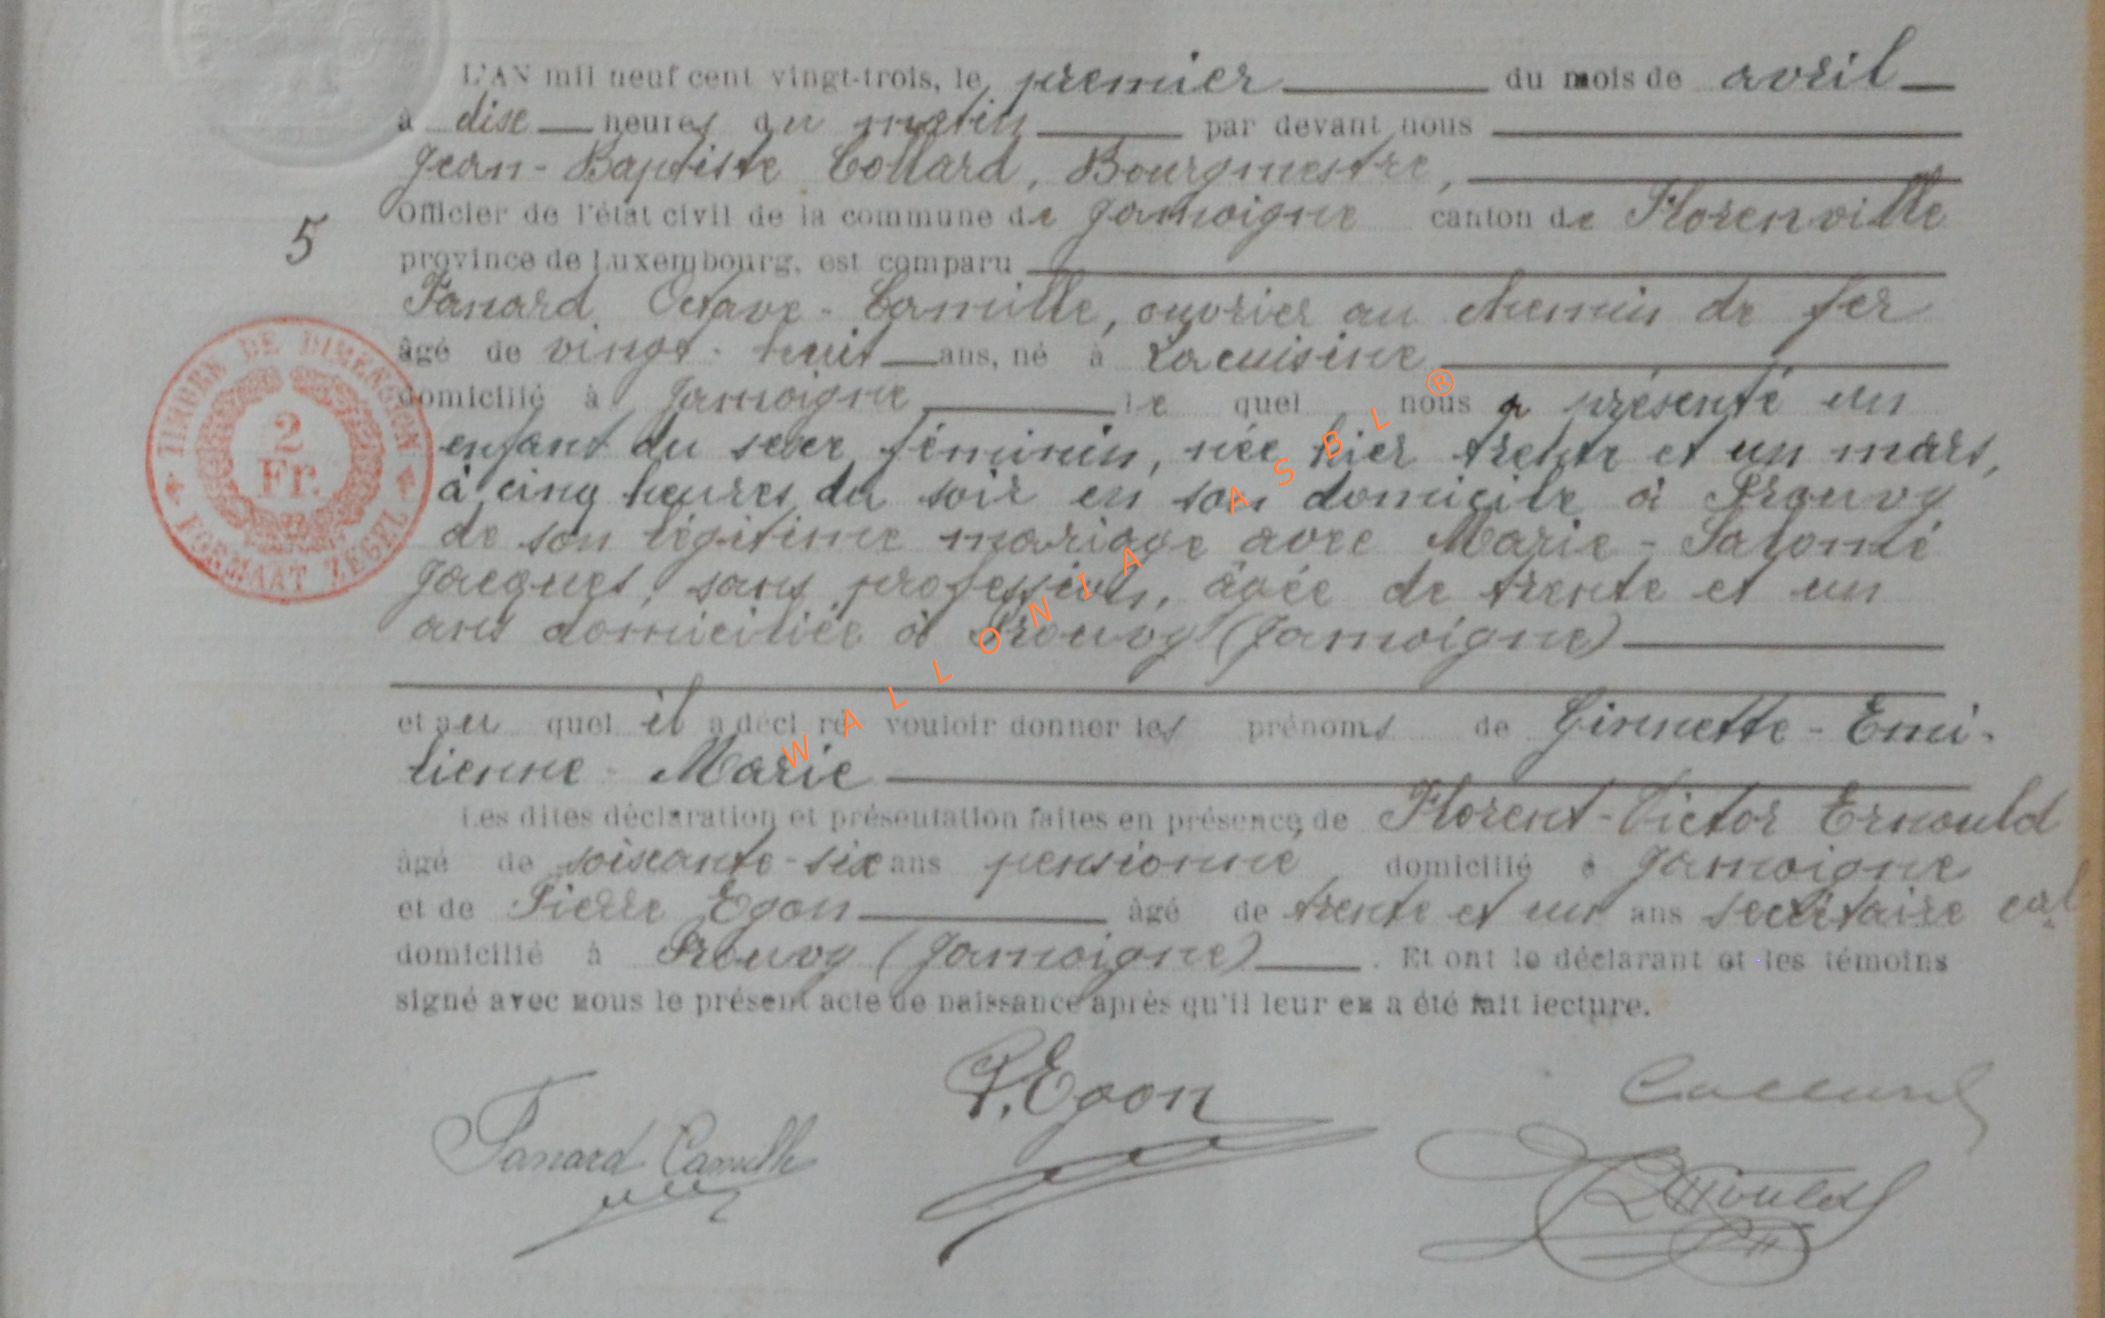 L'AN mil neuf cent vingt-trois, le premier du mois de avril
à dix heures du matin par devant nous
Jean-Baptiste Collard, Bourgmestre,
Officier de l'état civil de la commune de Jamoigne canton de Florenville
5
province de Luxembourg, est comparu
Fanard, Octave-Camille, ouvrier au chemin de fer
âgé de vingt-huit ans, né à Lacuisine
domicilié à Jamoigne le quel nous a présenté un
enfant du sexe féminin, née hier trente et un mars,
à cinq heures du soir en son domicile à Prouvy
de son légitime mariage avec Marie-Salomé
Jacques, sans profession, âgée de trente et un
ans domiciliée à Prouvy (Jamoigne)
TIMBRE DE DIMENSION
2
Fr.
FORMAAT ZEGEL
et au quel il a déclaré vouloir donner les prénoms de Ginnette-Emi-
lienne-Marie
Les dites déclaration et présentation faites en présence de Florent-Victor Ernould
âgé de soixante-six ans pensionné domicilié à Jamoigne
et de Pierre Egon âgé de trente et un ans secrétaire cal
domicilié à Prouvy (Jamoigne). Et ont le déclarant et les témoins
signé avec nous le présent acte de naissance après qu'il leur en a été fait lecture.
P. Egon
Collard
Fanard Camille
Ernould
WALLONIA ASBL®